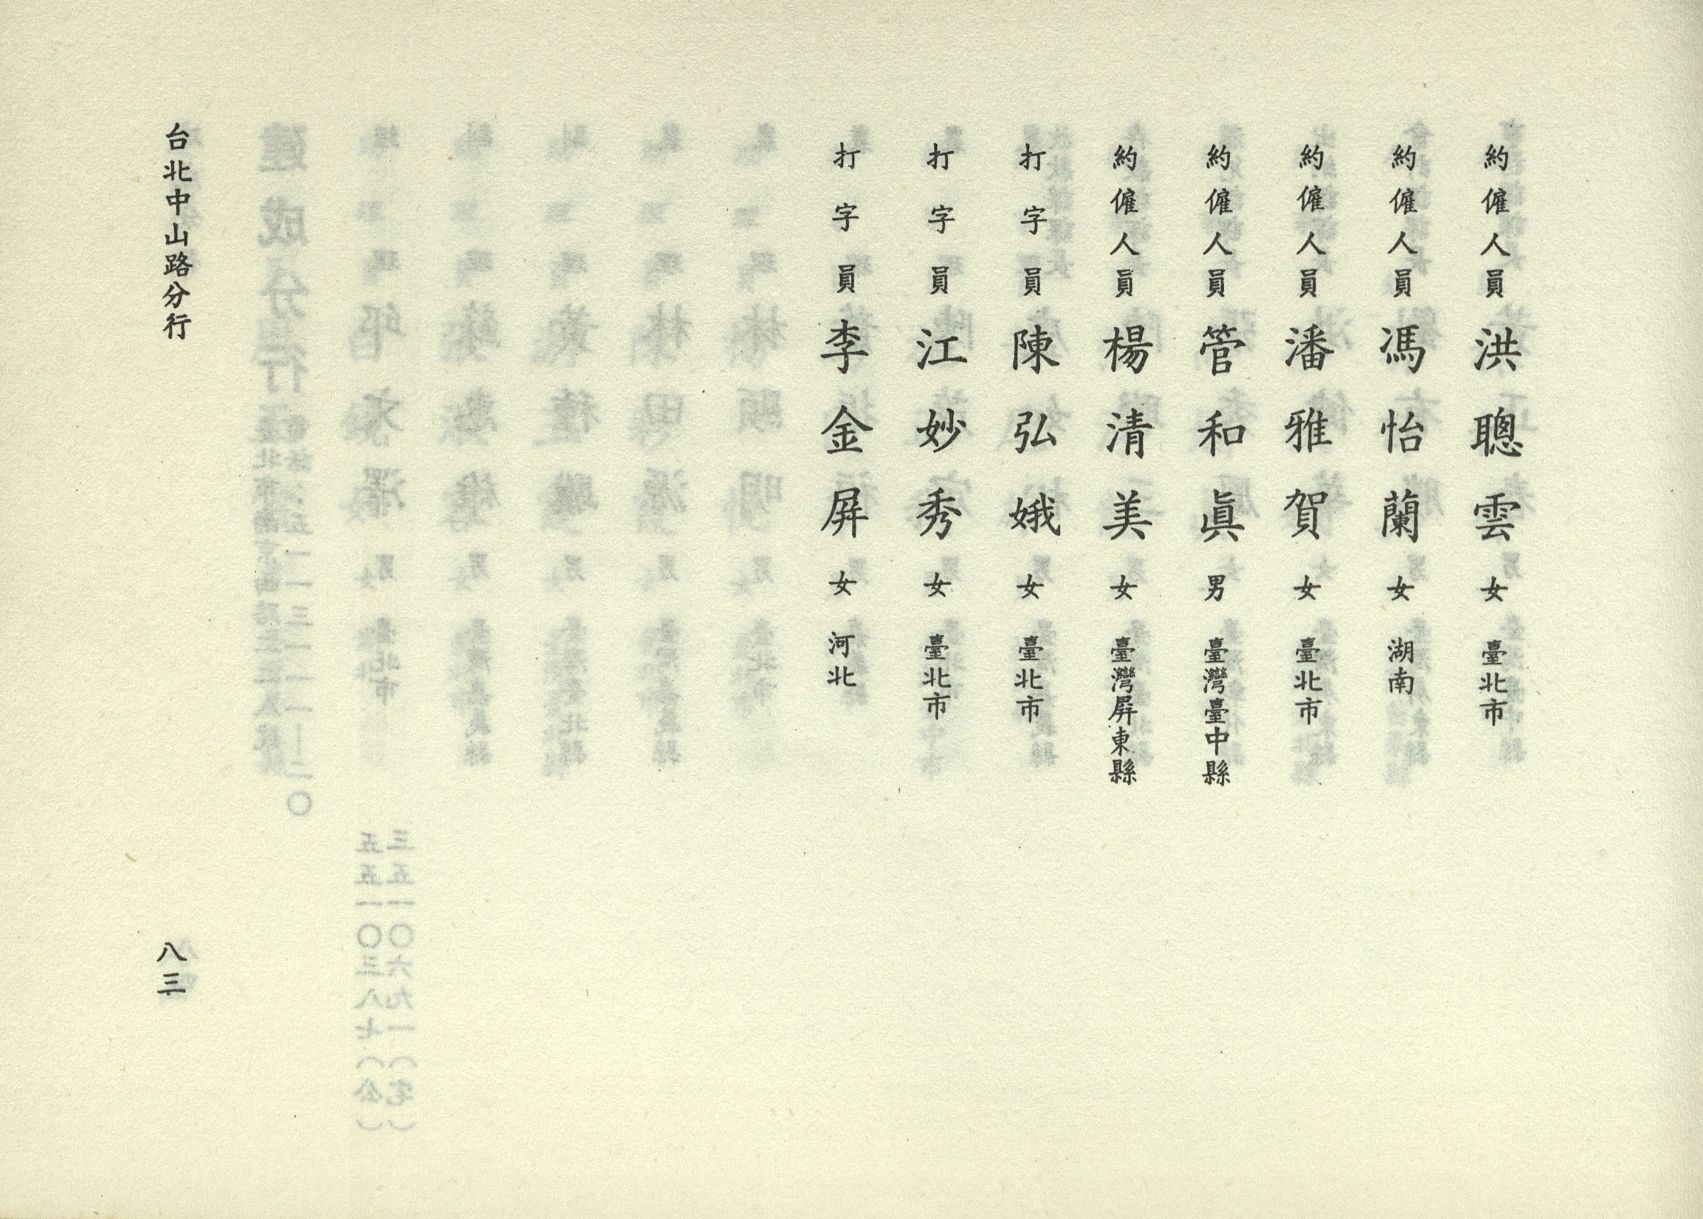 約僱人員 洪聰雲 女 臺北市
約僱人員 馮怡蘭 女 湖南
約僱人員 潘雅賀 女 臺北市
約僱人員 管和眞 男 臺灣臺中縣
約僱人員 楊清美 女 臺灣屏東縣
打字員 陳弘娥 女 臺北市
打字員 江妙秀 女 臺北市
打字員 李金屏 女 河北
台北中山路分行
八三